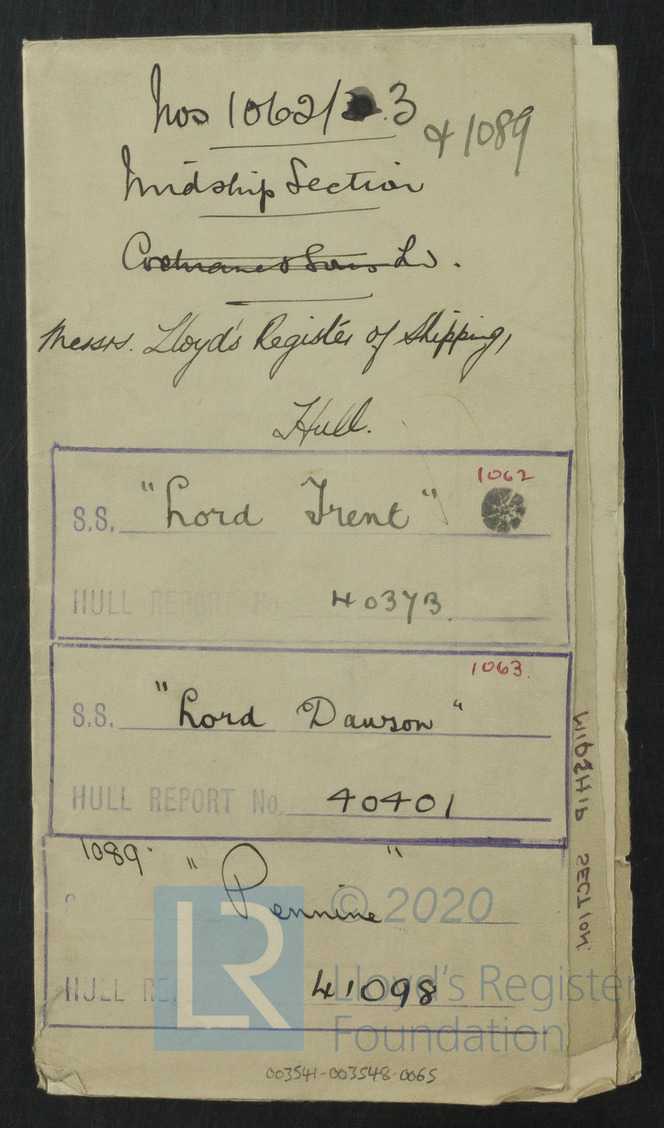 Nos 1062/3
& 1089
Midship Section
Cochrane & Sons Ld.
Messrs. Lloyd's Register of Shipping,
Hull.
1062
S.S. "Lord Trent"
HULL REPORT No. 40373.
1063.
S.S. "Lord Dawson"
HULL REPORT No. 40401
1089. "Pennine"
HULL RE 41098
MIDSHIP SECTION
LR
© 2020
Lloyd's Register
Foundation
003541-003548-0065